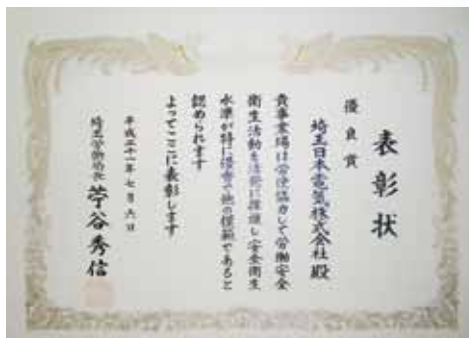 表彰状
優良賞
埼玉日本電気株式会社 殿
貴事業場は労使協力して労働安全
衛生活動を活発に推進し安全衛生
水準が特に優秀で他の模範であると
認められます
よってここに表彰します
平成二十一年七月六日
埼玉労働局長 苧谷秀信